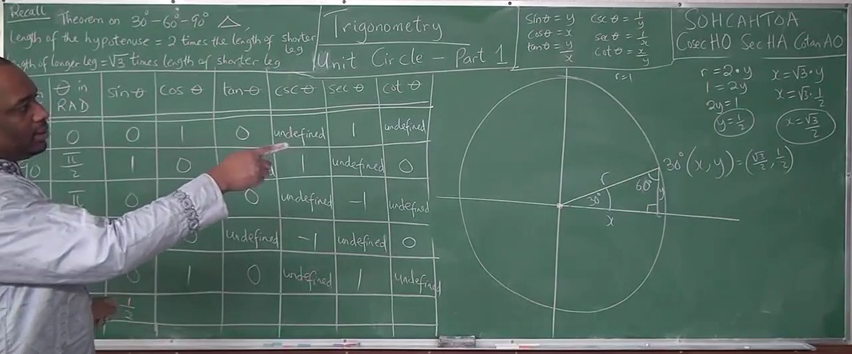 Recall Theorem on 30° - 60° - 90° △,
length of the hypotenuse = 2 times the length of shorter leg
of longer leg = √3 times length of shorter leg
Trigonometry
Unit Circle - Part 1
sinθ = y cscθ = 1/y
cosθ = x secθ = 1/x
tanθ = y/x cotθ = x/y
r=1
SOHCAHTOA
CosecHO SecHA CotanAO
r = 2·y x = √3·y
1 = 2y x = √3·1/2
2y = 1
y = 1/2 x = √3/2
θ in RAD sinθ cosθ tanθ cscθ secθ cotθ
0 0 1 0 undefined 1 undefined
π/2 1 0 1 undefined 0
π 0 undefined -1 undefined
undefined -1 undefined 0
0 1 0 undefined 1 undefined
1/2
30° (x, y) = (√3/2, 1/2)
r 60° y
30°
x